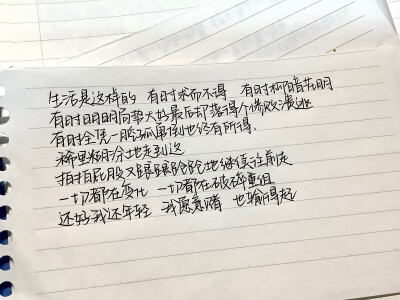 生活是这样的 有时求而不得 有时柳暗花明
有时明明局势大好最后却落得个惨败溃逃
有时全凭一腔孤勇倒也终有所得.
稀里糊涂地走到这
拍拍屁股又踉踉跄跄地继续往前走
一切都在变化 一切都在破碎重组
还好我还年轻 我愿意赌 也输得起